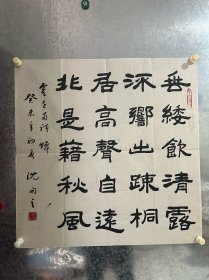 垂緌飲清露
流響出疎桐
居高聲自遠
非是藉秋風
虞世南詩蟬
癸未年初春 沈